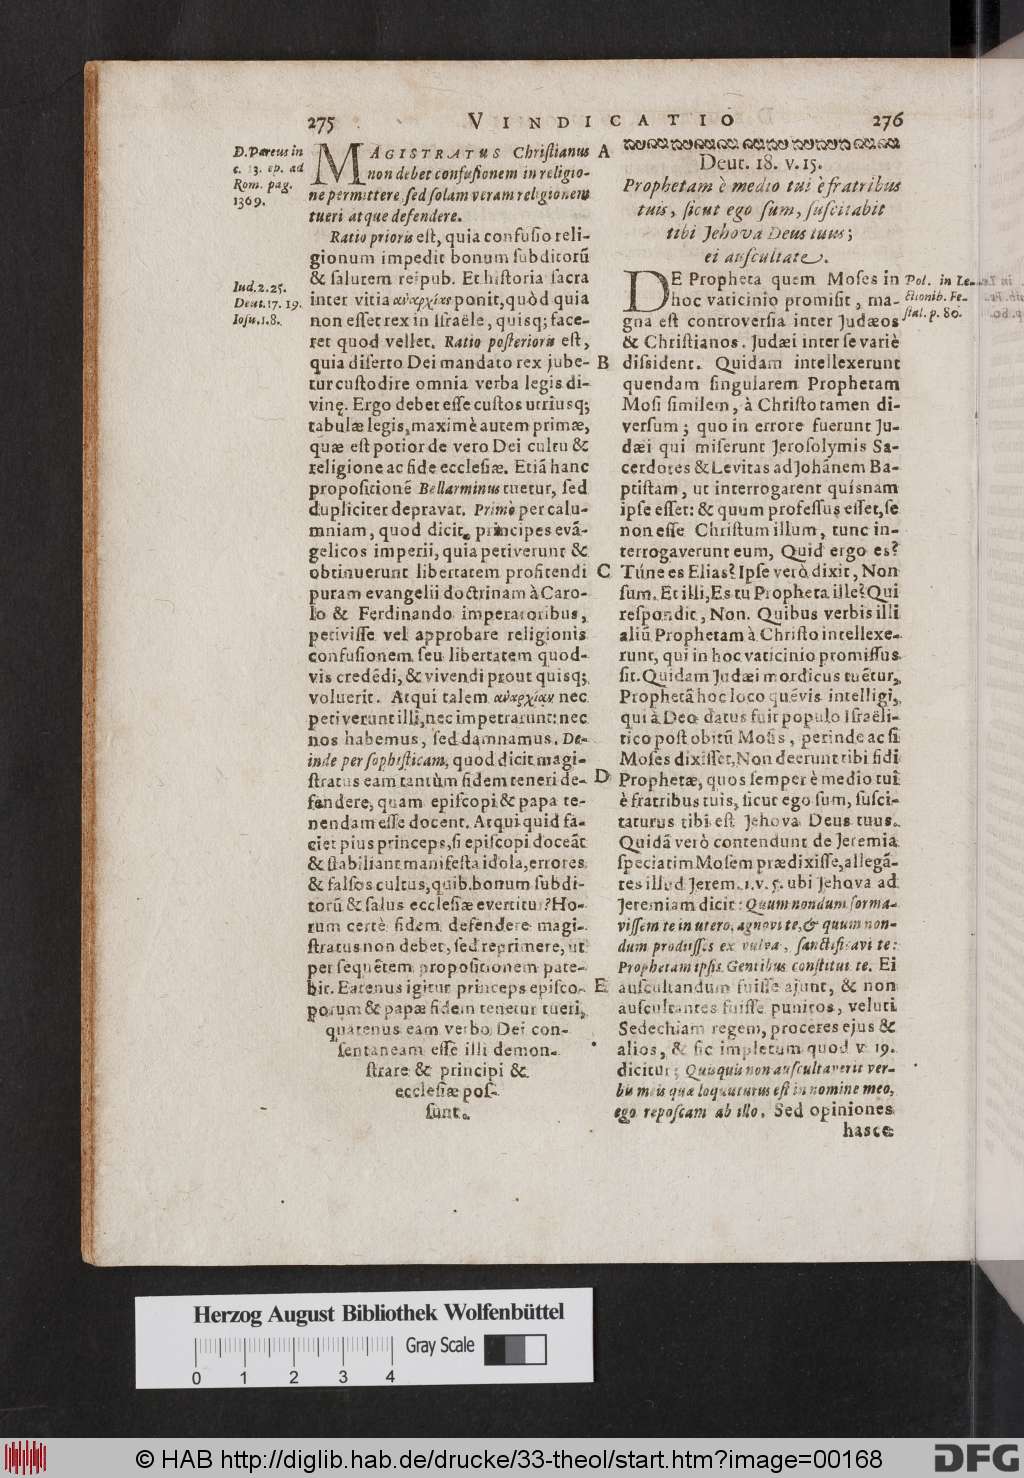 275 VINDICATIO 276
D. Pareus in
c. 13. ep. ad
Rom. pag.
1369.
MAGISTRATUS Christianus
non debet confusionem in religio-
ne permittere, sed solam veram religionem
tueri atque defendere.
Ratio prioris est, quia confusio reli-
gionum impedit bonum subditorũ
& salutem reipub. Et historia sacra
Iud. 2. 25.
Deut. 17. 19.
Iosu. 1. 8.
inter vitia ἀναρχίας ponit, quòd quia
non esset rex in Israële, quisq; face-
ret quod vellet. Ratio posterioris est,
quia diserto Dei mandato rex jube-
tur custodire omnia verba legis di-
vinę. Ergo debet esse custos utriusq;
tabulæ legis, maximè autem primæ,
quæ est potior de vero Dei cultu &
religione ac fide ecclesiæ. Etiã hanc
propositionẽ Bellarminus tuetur, sed
dupliciter depravat. Primò per calu-
mniam, quod dicit, principes evã-
gelicos imperii, quia petiverunt &
obtinuerunt libertatem profitendi
puram evangelii doctrinam à Caro-
lo & Ferdinando imperatoribus,
petivisse vel approbare religionis
confusionem seu libertatem quod-
vis credẽdi, & vivendi prout quisq;
voluerit. Atqui talem ἀναρχίαν nec
petiverunt illi, nec impetrarunt: nec
nos habemus, sed damnamus. De-
inde per sophisticam, quod dicit magi-
stratus eam tantùm fidem teneri de-
fendere, quam episcopi & papa te-
nendam esse docent. Atqui quid fa-
ciet pius princeps, si episcopi doceãt
& stabiliant manifesta idola, errores
& falsos cultus, quib. bonum subdi-
torũ & salus ecclesiæ evertitur? Ho-
rum certè fidem defendere magi-
stratus non debet, sed reprimere, ut
per sequẽtem propositionem pate-
bit. Eatenus igitur princeps episco-
porum & papæ fidem tenetur tueri,
quatenus eam verbo Dei con-
sentaneam esse illi demon-
strare & principi &
ecclesiæ pos-
sunt.
A
B
C
D
E
Deut. 18. v. 15.
Prophetam è medio tui è fratribus
tuis, sicut ego sum, suscitabit
tibi Jehova Deus tuus;
ei auscultate.
DE Propheta quem Moses in
hoc vaticinio promisit, ma-
gna est controversia inter Judæos
Pol. in Le-
ctionib. Fe-
stal. p. 80.
& Christianos. Judæi inter se variè
dissident. Quidam intellexerunt
quendam singularem Prophetam
Mosi similem, à Christo tamen di-
versum; quo in errore fuerunt Ju-
dæi qui miserunt Jerosolymis Sa-
cerdotes & Levitas ad Johãnem Ba-
ptistam, ut interrogarent quísnam
ipse esset: & quum professus esset, se
non esse Christum illum, tunc in-
terrogaverunt eum, Quid ergo es?
Túne es Elias? Ipse verò dixit, Non
sum. Et illi, Es tu Propheta ille? Qui
respondit, Non. Quibus verbis illi
aliũ Prophetam à Christo intellexe-
runt, qui in hoc vaticinio promissus
sit. Quidam Judæi mordicus tuẽtur,
Prophetã hoc loco quẽvis intelligi,
qui à Deo datus fuit populo Israëli-
tico post obitũ Mosis, perinde ac si
Moses dixisset, Non deerunt tibi fidi
Prophetæ, quos semper è medio tui
è fratribus tuis, sicut ego sum, susci-
taturus tibi est Jehova Deus tuus.
Quidã verò contendunt de Jeremia
speciatim Mosem prædixisse, allegã-
tes illud Jerem. 1. v. 5. ubi Jehova ad
Jeremiam dicit: Quum nondum forma-
vissem te in utero, agnovi te, & quum non-
dum prodiisses ex vulva, sanctificavi te:
Prophetam ipsis Gentibus constitui te. Ei
auscultandum fuisse ajunt, & non
auscultantes fuisse punitos, veluti
Sedechiam regem, proceres ejus &
alios, & sic impletum quod v. 19.
dicitur; Quisquis non auscultaverit ver-
bis meis quæ loquuturus est in nomine meo,
ego reposcam ab illo. Sed opiniones
hasce
Herzog August Bibliothek Wolfenbüttel
Gray Scale
0 1 2 3 4
© HAB http://diglib.hab.de/drucke/33-theol/start.htm?image=00168
DFG